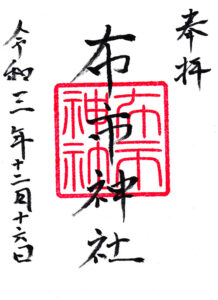 奉拝
布市神社
布市神社
令和三年十二月十六日